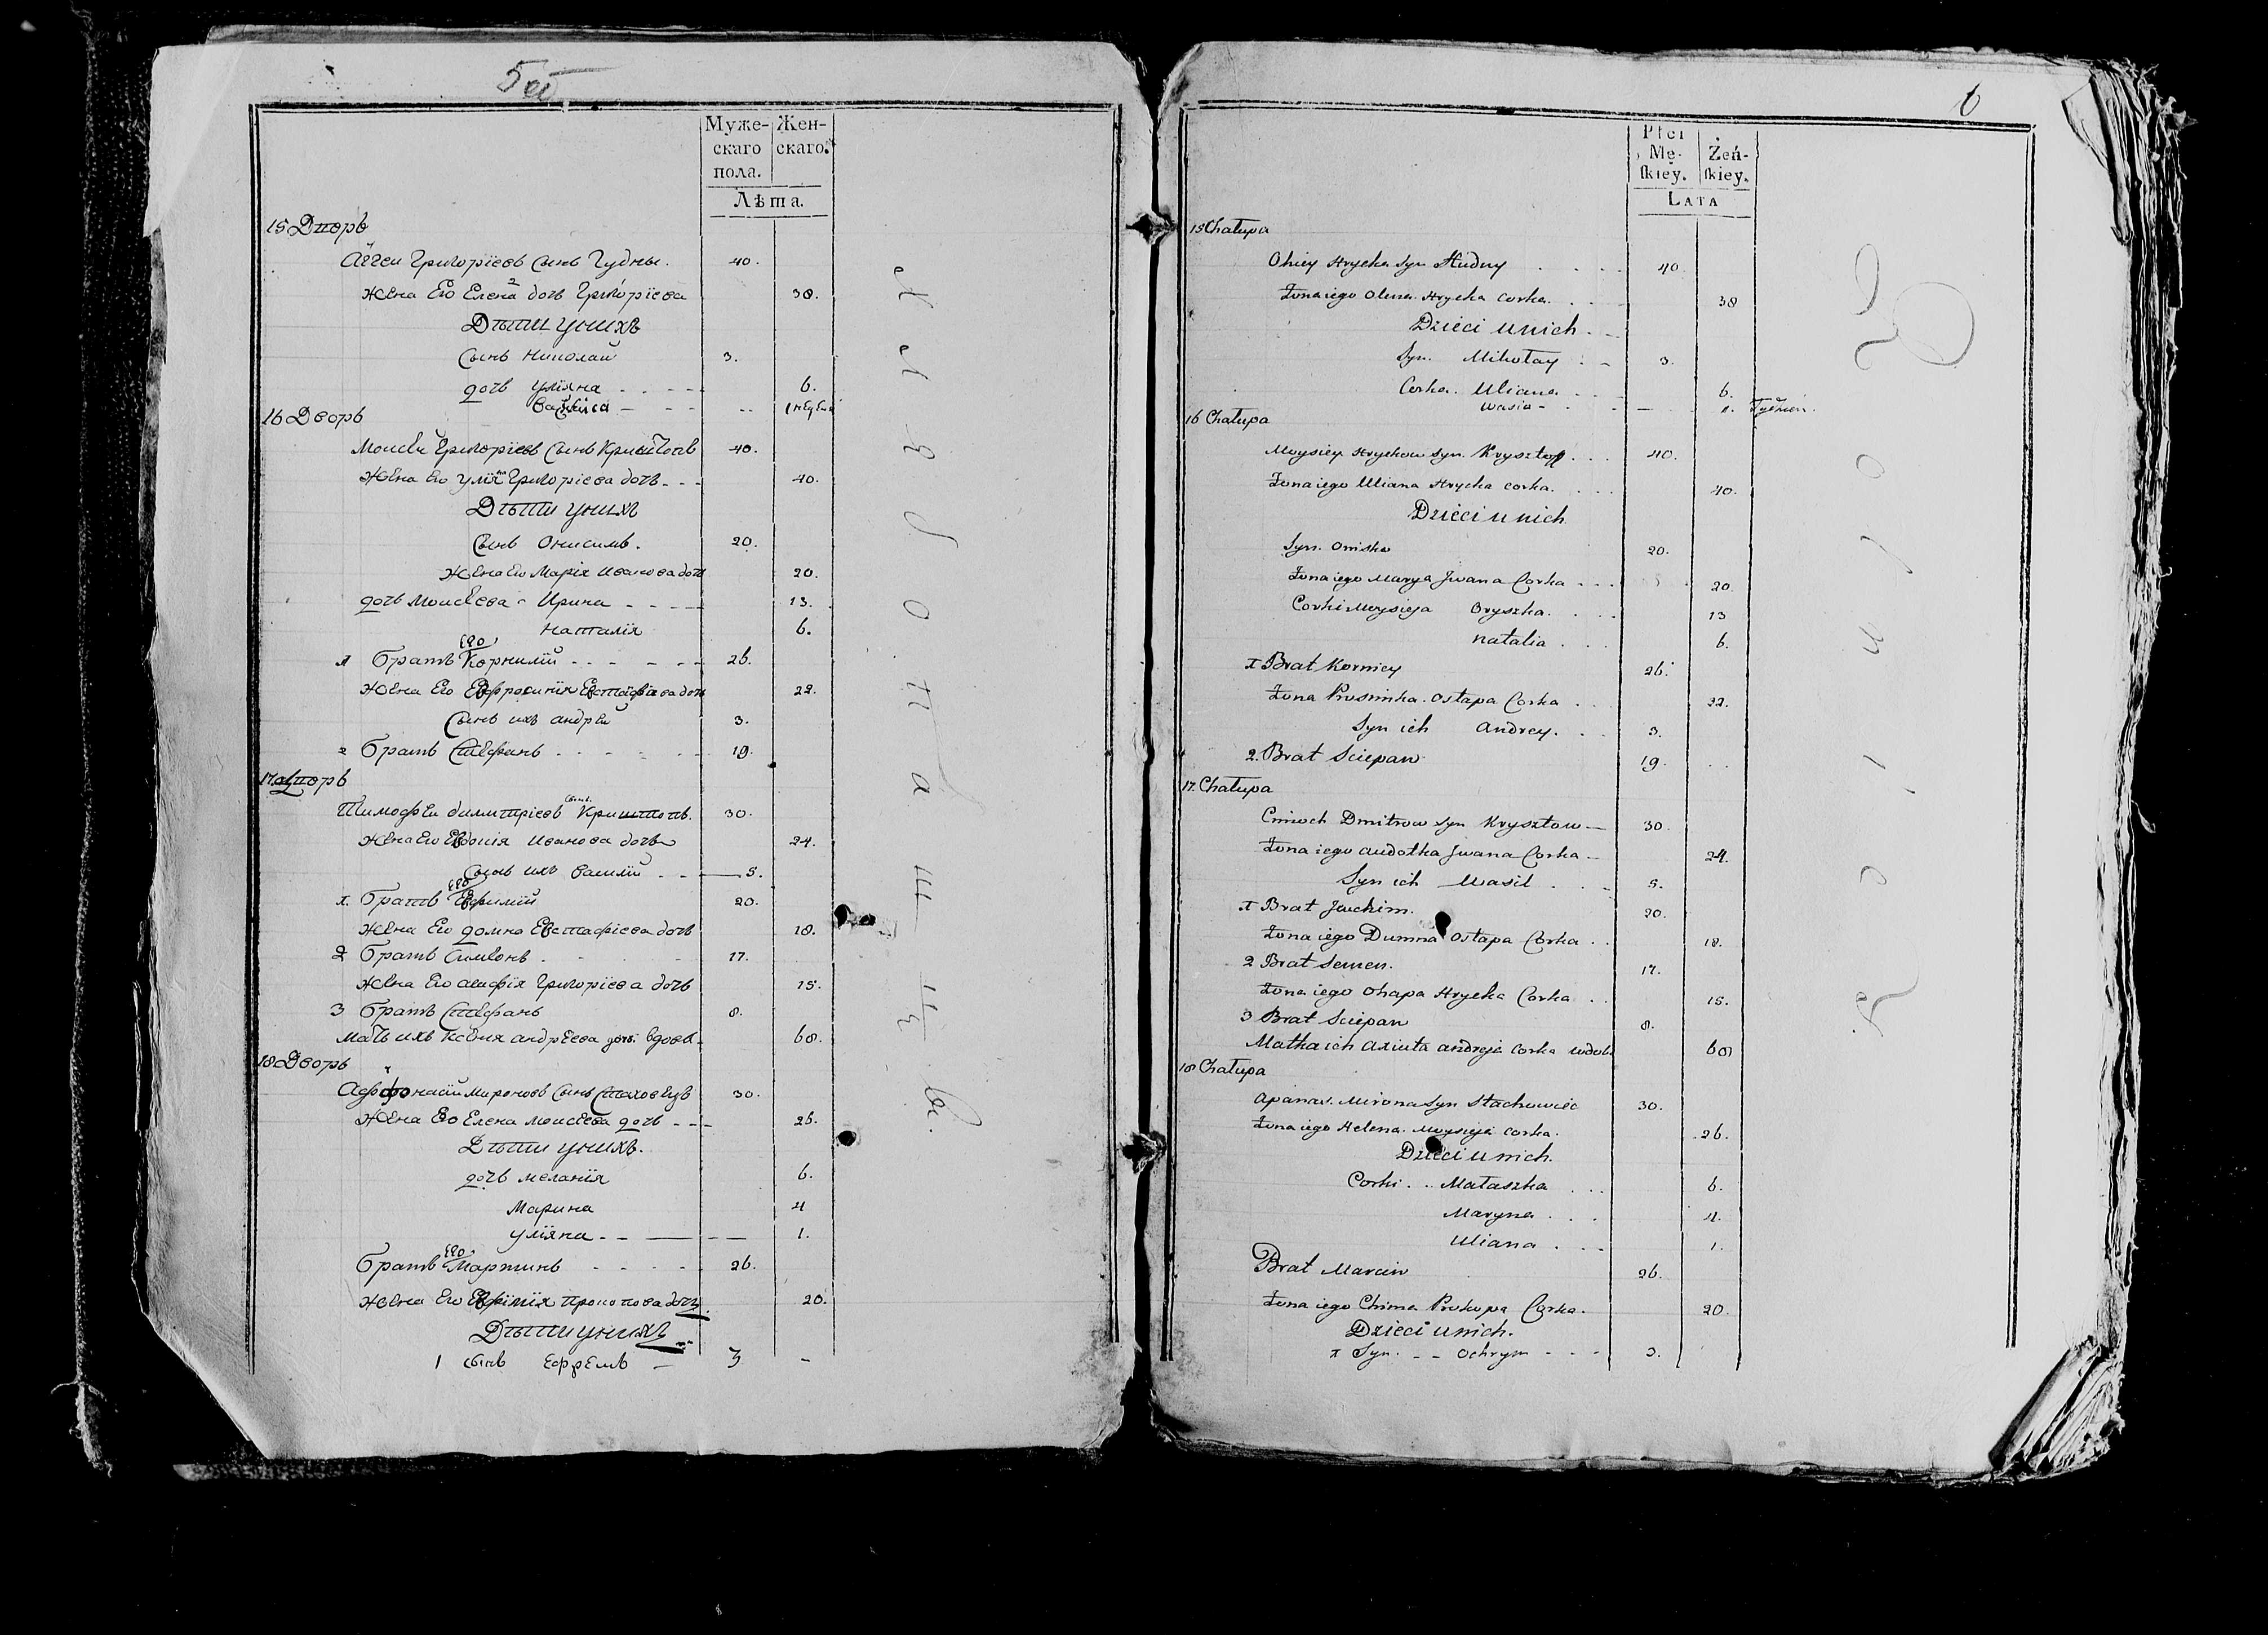 5 об
Муже-
скаго
пола.
Жен-
скаго.
Лѣта.
15 Дворъ
Аггеи Григорїевъ Сынъ Гудны. 40.
Жена Его Елена дочь Григорїева 38.
Дѣти у нихъ
Сынъ Николай 3.
дочь Улїяна 6.
16 Дворъ
Моисей Григорїевъ Сынъ Криштопъ 40.
Жена Его Улїяна Григорїева дочь 40.
Дѣти у нихъ
Сынъ Онисимъ. 20.
Жена Его Марїя Иванова дочь 20.
дочь Моисеева Ирина 13.
Наталїя 6.
1 Братъ Его Корнилїй 26.
Жена Его Евфросинїя Евстафїева дочь 22.
Сынъ ихъ Андрей 3.
2 Братъ Стефанъ 19.
17 Дворъ
Тимофеи Димитрїевъ Сынъ Криштопъ. 30.
Жена Его Евдокїя Иванова дочь 24.
Сынъ ихъ Василїй 5.
1. Братъ Его Евфимїй 20.
Жена Его Домна Евстафїева дочь 18.
2 Братъ Симеонъ 17.
Жена Его Агафїя Григорїева дочь 15.
3 Братъ Стефанъ 8.
Мать ихъ Ксенїя Андреева дочь вдова 60.
18 Дворъ
Афонасїй Мироновъ Сынъ Стаховецъ 30.
Жена Его Елена Моисеева дочь 26.
Дѣти у нихъ.
дочь Меланїя 6.
Марина 4
Улїяна 1.
Братъ Его Мартинъ 26.
Жена Его Евфимїя Прокопова дочь. 20.
Дѣти у нихъ
1 сынъ Ефремъ 3 -
6
Płci
Mę-
ſkiey.
Żeń-
ſkiey.
LATA
15 Chałupa
Ohiey Hrycka Syn Hudny 40.
Żona iego Olena Hrycka Corka. 38
Dzieci u nich.
Syn. Mikołay 3.
Corka. Uliana 6.
Wasia 1. Tydzień.
16 Chałupa
Moysiey Hryckow Syn. Krysztop 40.
Żona iego Uliana Hrycka corka. 40.
Dzieci u nich
Syn. Oniska 20.
Żona iego Marya Jwana Corka 20.
Corki Moysieja Oryszka. 13
Natalia 6.
1 Brat Korniey 26.
Żona Prosimka Ostapa Corka 22.
Syn ich Andrey. 3.
2. Brat Sciepan 19.
17. Chałupa
Cimoch Dmitrow Syn Krysztow 30.
Żona iego Audotka Jwana Corka 24.
Syn ich Wasil 5.
1 Brat Jauchim. 20.
Żona iego Dumna Ostapa Corka 18.
2 Brat Semen. 17.
Żona iego Ohapa Hrycka Corka 15.
3 Brat Sciepan 8.
Matka ich Axiuta Andreja Corka wdowa 60
18 Chałupa
Apanas Mirona Syn Stachowiec 30.
Żona iego Helena Moysieja Corka. 26.
Dzieci u nich.
Corki Małaszka 6.
Maryna 4.
Uliana 1.
Brat Marcin 26.
Żona iego Chima Prokopa Corka. 20.
Dzieci u nich.
1 Syn. Ochrym 3.